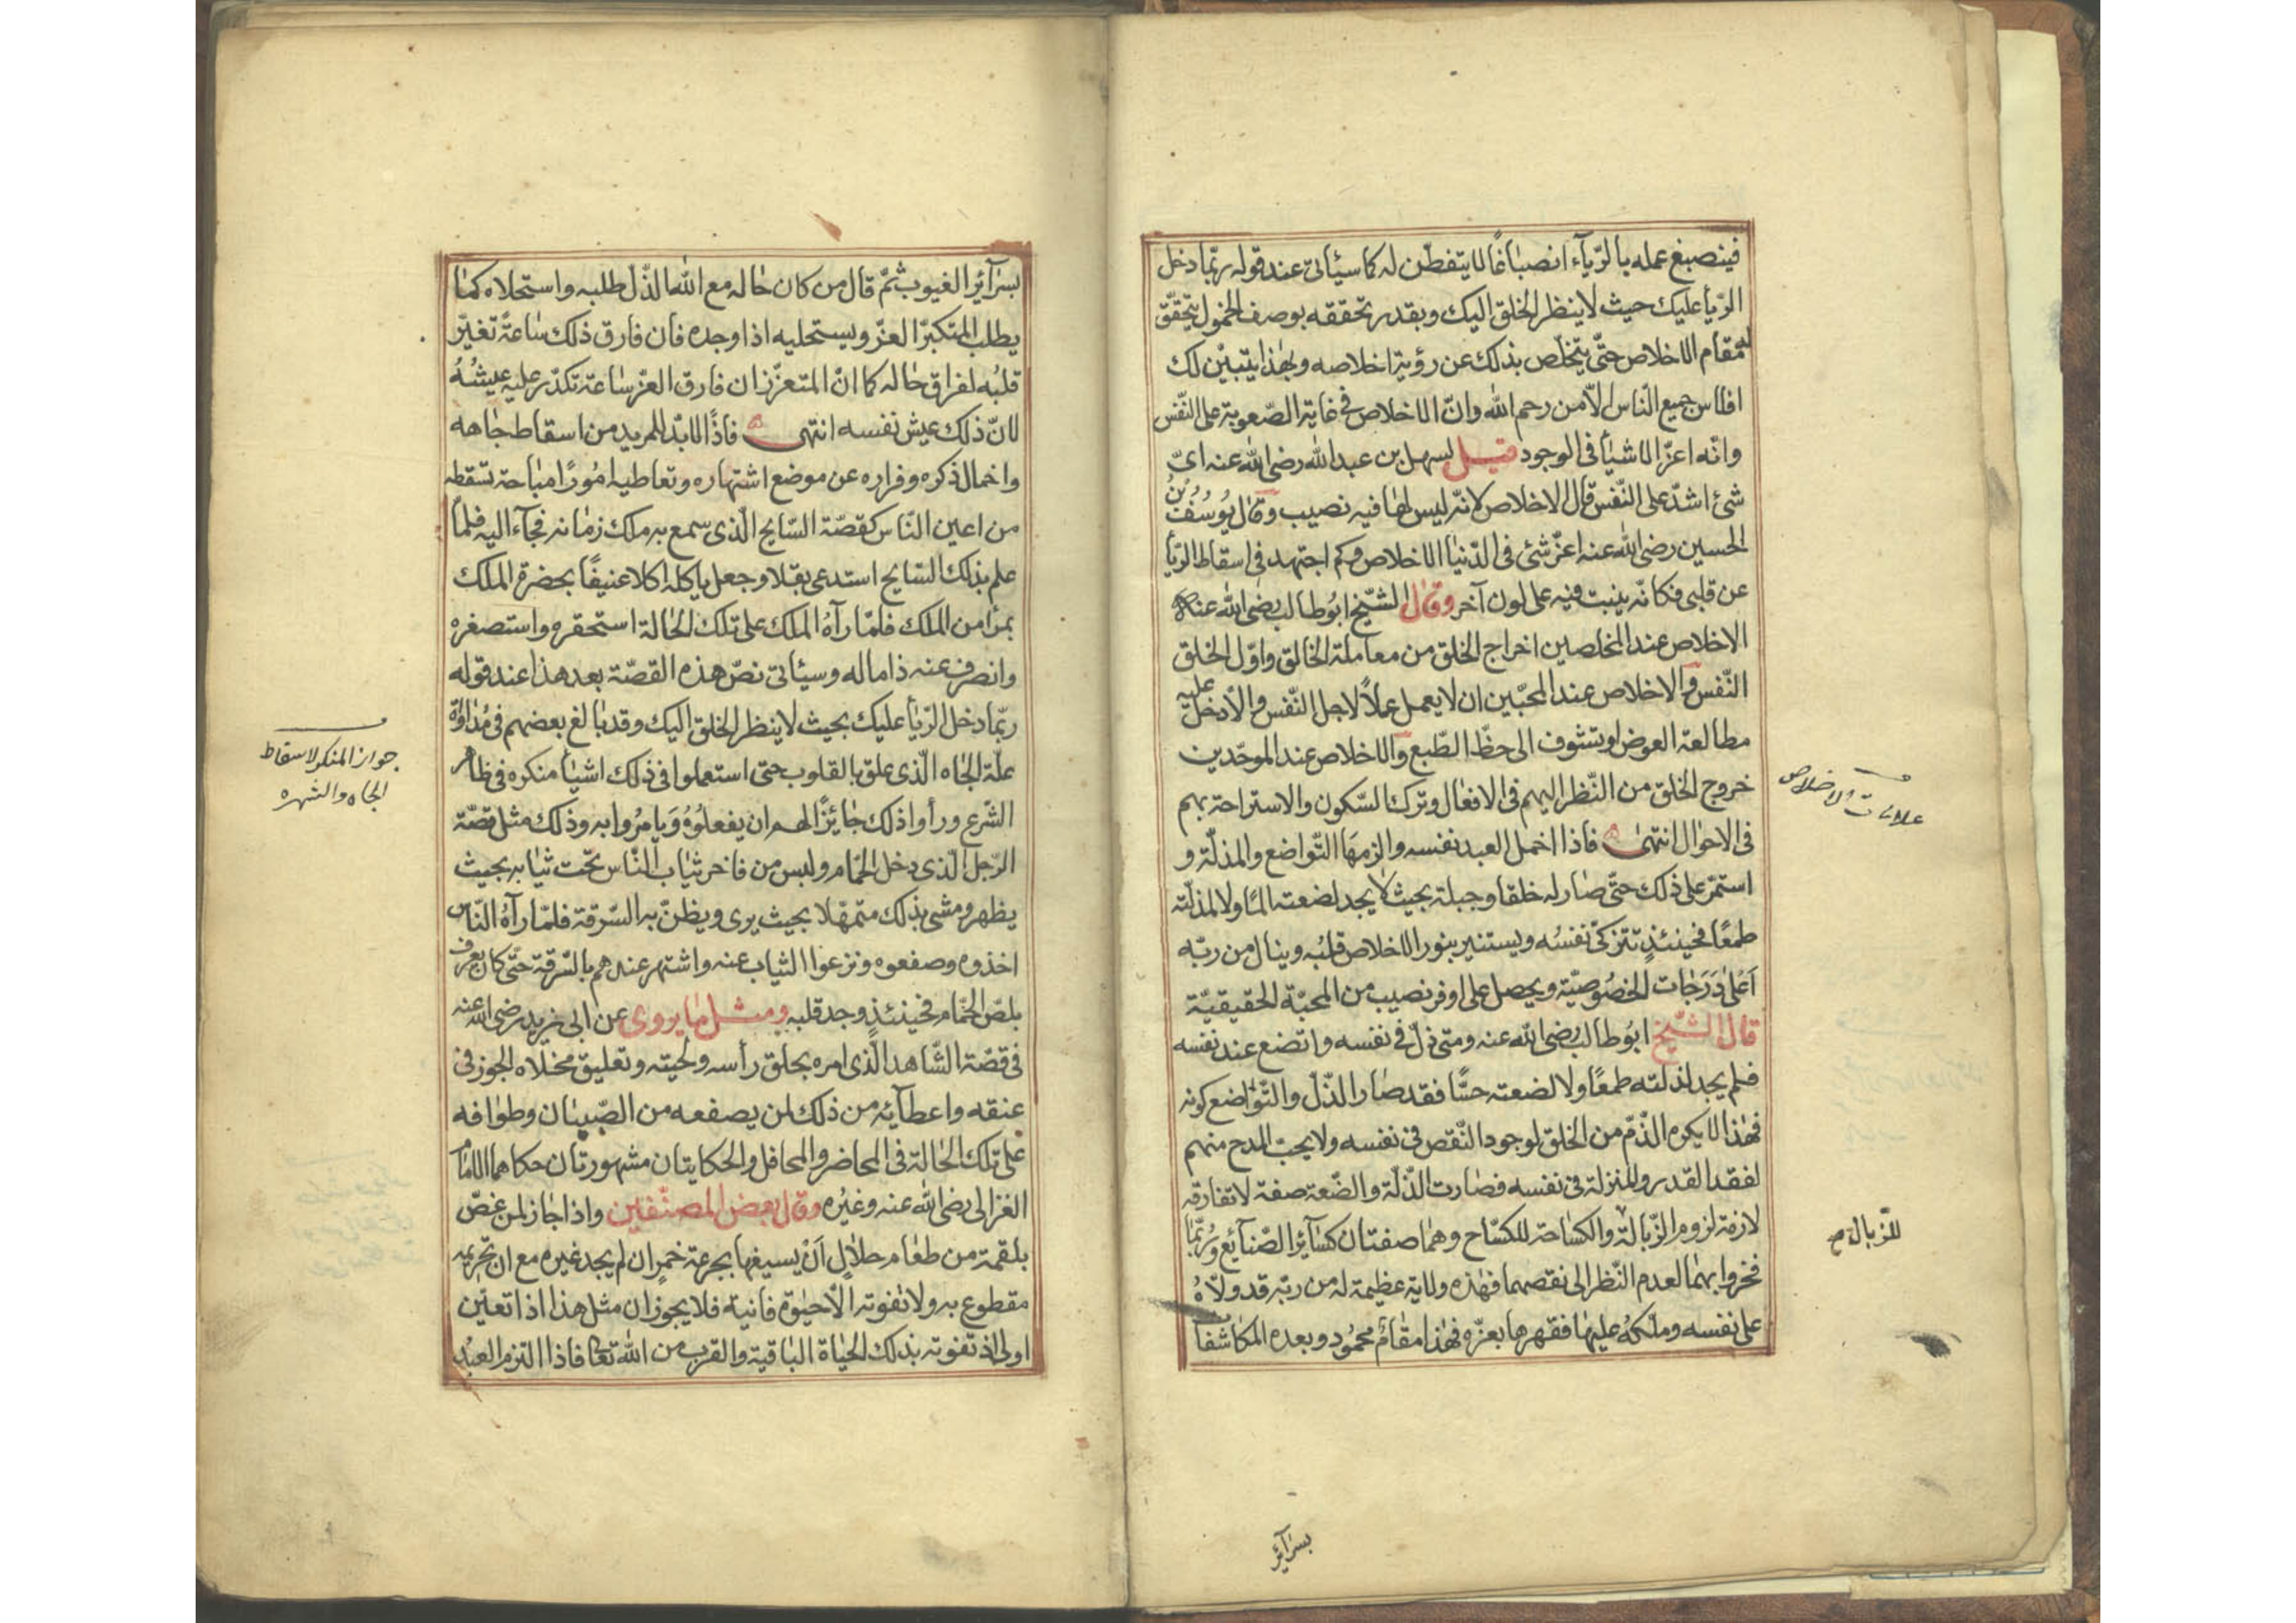 فينصبغ عمله بالرّيآء انصباغًا لا يتفطّن له كما سيأتى عند قوله ربّما دخل
الرّيأ عليك حيث لا ينظر الخلق اليك وبقدر تحققه بوصف الخمول يتحقّق
له مقام الاخلاص حتّى يتخلّص بذلك عن رؤية اخلاصه وبهذا يتبيّن لك
افلاس جميع النّاس الاّ من رحم الله وانّ الاخلاص فى غاية الصّعوبة على النّفس
وانّه اعزّ الاشيأ فى الوجود قيل لسهل بن عبد الله رضى الله عنه اىّ
شئ اشدّ على النّفس قال الاخلاص لانّه ليس لها فيه نصيب وقال يُوسُفُ بنُ
الحسين رضى الله عنه اعزّ شئ فى الدّنيا الاخلاص وكم اجتهد فى اسقاط الرّيأ
عن قلبى فكانّه ينبت فيه على لون آخر وقال الشّيخ ابُو طالب رضى الله عنه
الاخلاص عند المخلصين اخراج الخلق من معاملة الخالق واوّل الخلق
النّفس والاخلاص عند المحبّين ان لا يعمل عملاً لاجل النّفس والاّ دخل عليه
مطالعة العوض او يتشوف الى حظّ الطّبع والاخلاص عند الموحّدين
خروج الخلق من النّظر اليهم فى الافعال وترك السّكون والاستراحة بهم
فى الاحوال انتهى فاذا اخمل العبد نفسه والزمها التّواضع والمذلّة و
استمرّ على ذلك حتّى صار له خلقا وجبلة بحيث لا يجد لضعته المًا ولا لمذلّته
طمعًا فحينئذٍ تتزكّى نفسُه ويستنير بنور الاخلاص قلبُه وينال من ربّه
اَعْلىٰ دَرَجات الخصُوصيّة ويحصل على اوفر نصيب من المحبّة الحقيقيّة
قال الشّيخ ابُو طالب رضى الله عنه ومتى ذلّ فى نفسه واتضع عند نفسه
فلم يجد لذلته طمعًا ولا لضعته حسًّا فقد صار الذّلّ والتّواضع كونه
فهذا لا يكره الذّمّ من الخلق لوجود النّقص فى نفسه ولا يحبّ المدح منهم
لفقد القدر والمنزلة فى نفسه فصارت الذّلّة والضّعة صفة لا تفارقه
لازمة لزوم الزّبالة والكساحة للكسّاح وهما صفتان كسآئر الصّنآئع وربّما
فخروا بهما لعدم النّظر الى نقصهما فهذه ولاية عظيمة له من ربّه قد ولاّهُ
على نفسه وملّكهُ عليها فقهرها بعزّه فهذا مقامٌ محمُود وبعده المكاشفا
علامات الاخلاص
للزّبال ةصح
بسرآئر
بسرآئر الغيوب ثمّ قال من كان حاله مع الله الذّلّ طلبه واستحلاه كما
يطلب المتكبرّ العزّ ويستحليه اذا وجده فان فارق ذلك ساعةً تغيّر
قلبُه لفراق حاله كما انّ المتعزّز ان فارق العزّ ساعة تكدّر عليه عيشُهُ
لانّ ذلك عيش نفسه انتهى فاذًا لا بدّ للمريد من اسقاط جاهه
واخمال ذكره وفراره عن موضع اشتهاره وتعاطيه امُورًا مباحة تسقطه
من اعين النّاس كقصّة السّايح الّذى سمع به ملك زمانه فجآء اليه فلمّا
علم بذلك السّايح استدعى بقلا وجعل ياكله اكلا عنيفًا بحضرة الملك
بمرأ من الملك فلمّا رآهُ الملك على تلك الحالة استحقره واستصغره
وانصرف عنه ذاما له وسيأتى نصّ هذه القصّة بعد هذا عند قوله
ربّما دخل الرّيأ عليك بحيث لا ينظر الخلق اليك وقد بالغ بعضهم فى مُداواة
علّة الجاه الّذى علق بالقلوب حتى استعملوا فى ذلك اشيأ منكره فى ظاهر
الشّرع ورأوا ذلك جائزًا لهم ان يفعلُوهُ وَيامرُوا به وذلك مثل قصّة
الرّجل الّذى دخل الحمّام ولبس من فاخر ثياب النّاس تحت ثيابه بحيث
يظهر ومشى بذلك متمهّلا بحيث يرى ويظنّ به السّرقة فلمّا رآهُ النّاس
اخذوه وصفعوه ونزعوا الثياب عنه واشتهر عندهم بالسّرقة حتّى كان يعرف
بلصّ الحمّام فحينئذٍ وجد قلبه ومثل ما يروى عن ابى يزيد رضى الله عنه
فى قصّة الشّاهد الّذى امره بحلق رأسه ولحيته وتعليق مخلاه الجوز فى
عنقه واعطآئه من ذلك لمن يصفعه من الصّبيان وطوافه
على تلك الحالة فى المحاضر والمحافل والحكايتان مشهورتان حكاهما الامام
الغزالى رضى الله عنه وغيُره وقال بعض المصنّفين واذا جاز لمن غصّ
بلقمة من طعام حلالٍ اَنْ يسيغها بجرعة خمرٍ ان لم يجد غيره مع ان تحريمه
مقطوع به ولا تفوته الاّ حيٰوة فانية فلا يجوز ان مثل هذا اذا تعيّن
اولى اذ تفوته بذلك الحياة الباقية والقرب من الله تعا فاذا التزم العبدُ
جواز المنكر لاسقاط
الجاه والشهره